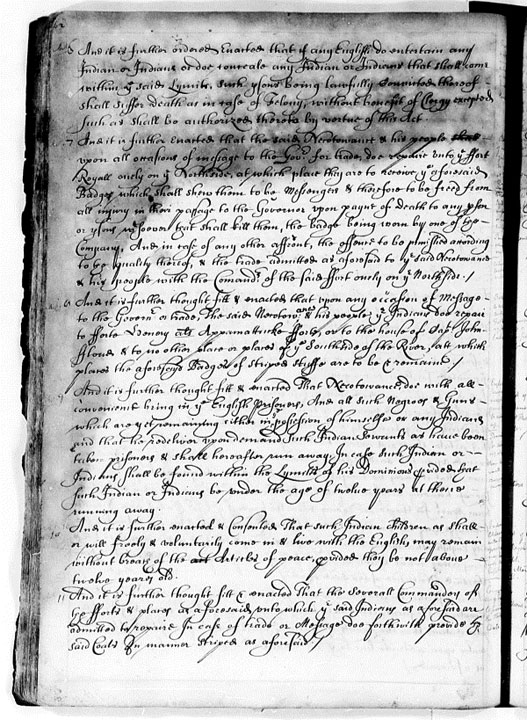 And it is further ordered & enacted that if any English do entertain any
Indian or Indians or doe conceale any Indian or Indians that shall come
within ye said Lymits, such psons being lawfully convicted thereof
shall suffer death as in case of felony, without benefit of Clergy excepted
such as shall be authorized thereto by vertue of this Act
7 And it is further enacted that the said Necotowance & his people
upon all occasions of message to the Govr. for trade, doe repaire unto ye ffort
Royall onely on ye Northside, at which place they are to receive ye aforesaid
Badges which shall shew them to be Messengers & therefore to be freed from
all injury in their passage to the Governor upon paynt of death to any pson
or psons wsoever that shall kill them, the badge being worn by one of the
Company, And in case of any other affront, the offense to be punished according
to the quality thereof, & the trade admitted as aforesaid to ye said Necotowance
& his people with the Comandr. of the said ffort onely on ye Northside /
And it is further thought fitt & enacted that upon any occasion of Message
to the Governr. or trade, The said Necotowance & his people ye Indians doe repair
to fforte Henery als Appamattucke fforte, or to the house of Capt John
fflood, & to no other place or places of ye Southside of the River, att which
places the aforesayd Badges of striped stuffe are to be & remaine /
And it is further thought fitt & enacted That Necotowance doe with all
convenience bring in ye English prisoners, And all such Negroes & Guns
which are yet remaining either in possession of himselfe or any Indians
and that he redeliver upon demand such Indian Servants as have been
taken prisoners & shall hereafter run away, In case such Indian or
Indians shall be found within the Lymitts of his Dominions pvided that
such Indian or Indians be under the age of twelve years at theire
running away.
10 And it is further enacted & consented That such Indian Children as shall
or will freely & voluntarily come in & live with the English, may remain
without breach of the Articles of peace, pvided they be not above
twelve yeares old.
11 And it is further thought fitt & enacted That the severall Commandrs of
the fforts & places as aforesaid, unto which ye said Indians as aforesaid are
admitted to repaire In case of trade or Message doe forthwith provide ye
said Coats In manner striped as aforesaid /